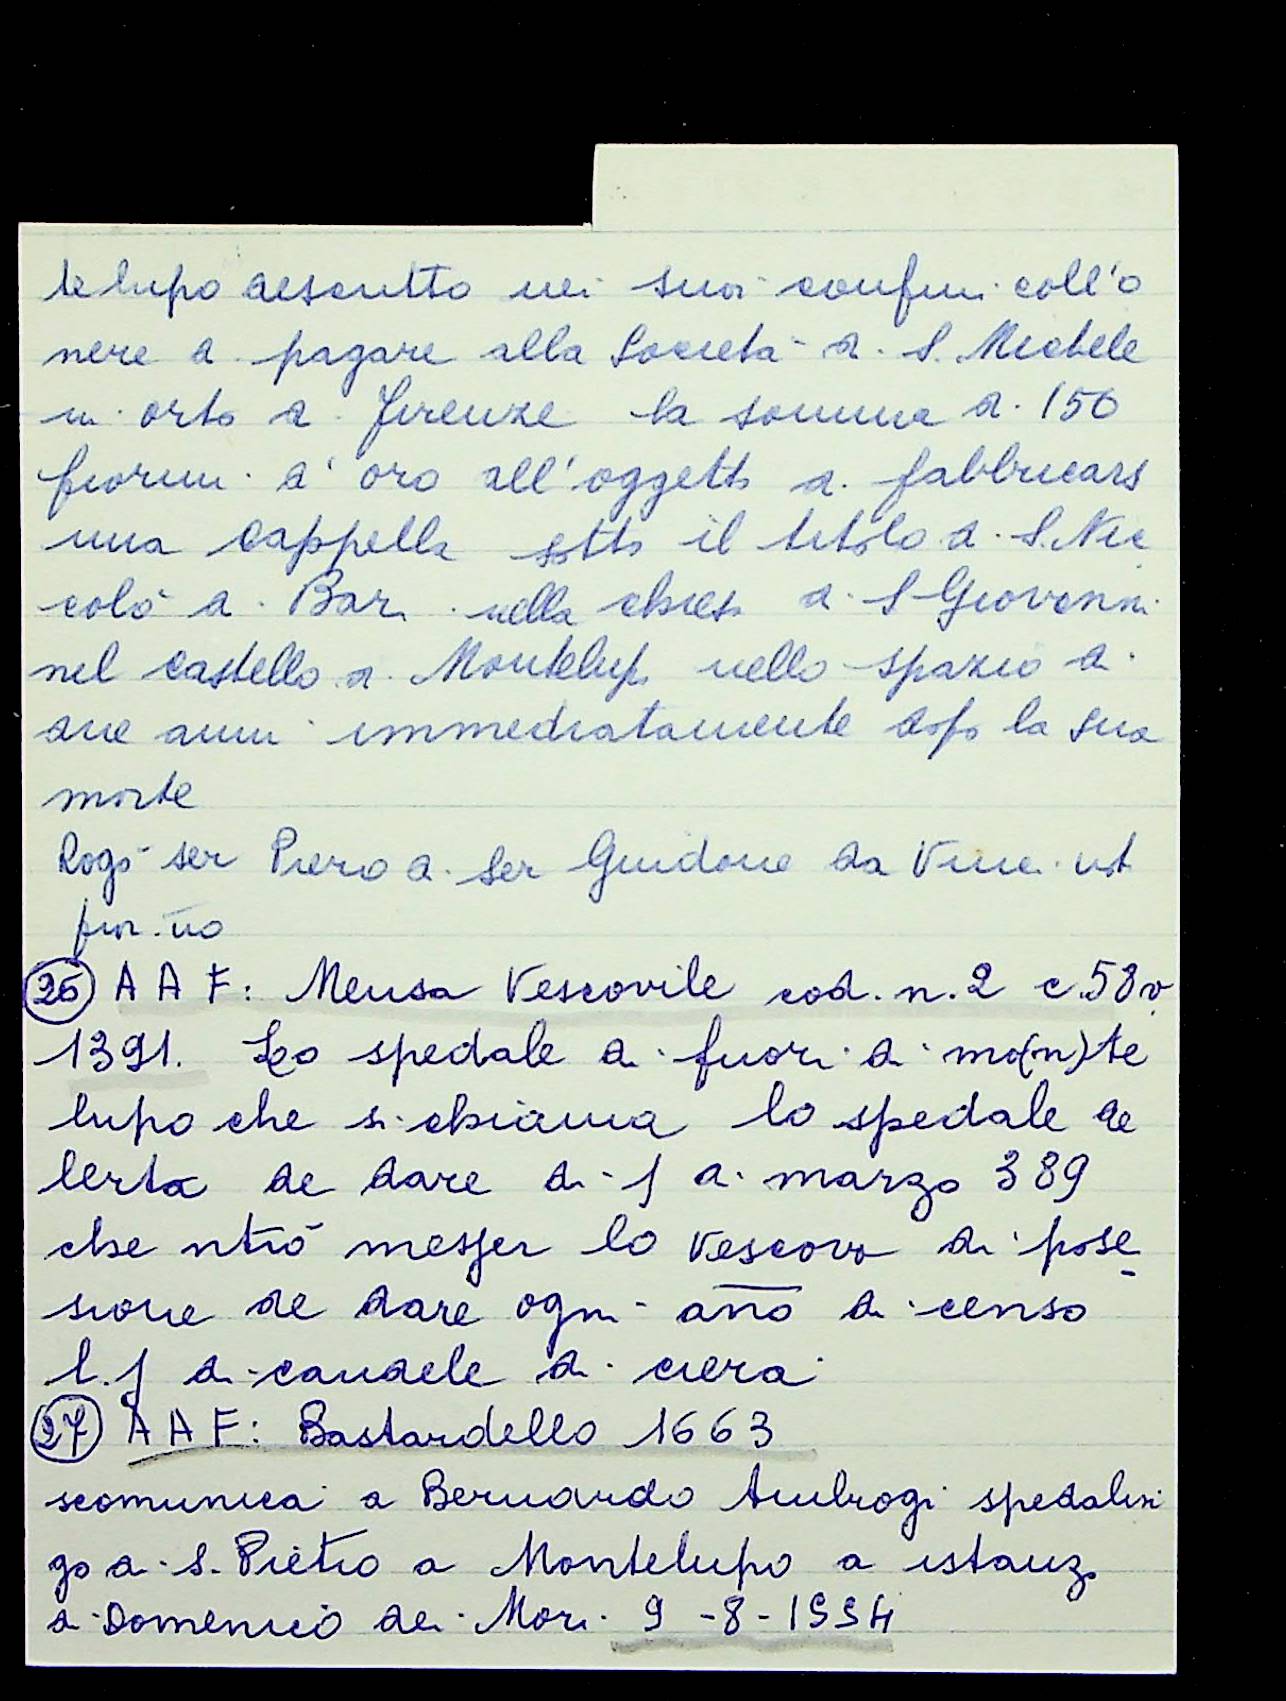 telupo descritto nei suoi confini coll'o
nere di pagare alla Società di S. Michele
in orto di Firenze la somma di 150
fiorini d'oro all'oggetto di fabbricarsi
una cappella sotto il titolo di S. Nic
colò di Bari nella chiesa di S Giovanni
nel castello di Montelupo nello spazio di
due anni immediatamente dopo la sua
morte
Rogò ser Piero di ser Guidone da Vinci not
fior.no
26 A A F: Mensa Vescovile cod. n. 2 c. 58v
1391. Lo spedale di fuori di mo(n)te
lupo che si chiama lo spedale de
lerta de dare di 1 di marzo 389
che ntrò messer lo vescovo di pose
sione de dare ogni año di censo
l. 1 di candele di ciera
27 A A F: Bastardello 1663
scomunica a Bernardo Ambrogi spedalin
go di S. Pietro a Montelupo a istanza
di Domenico dei Mori 9 - 8 - 1534